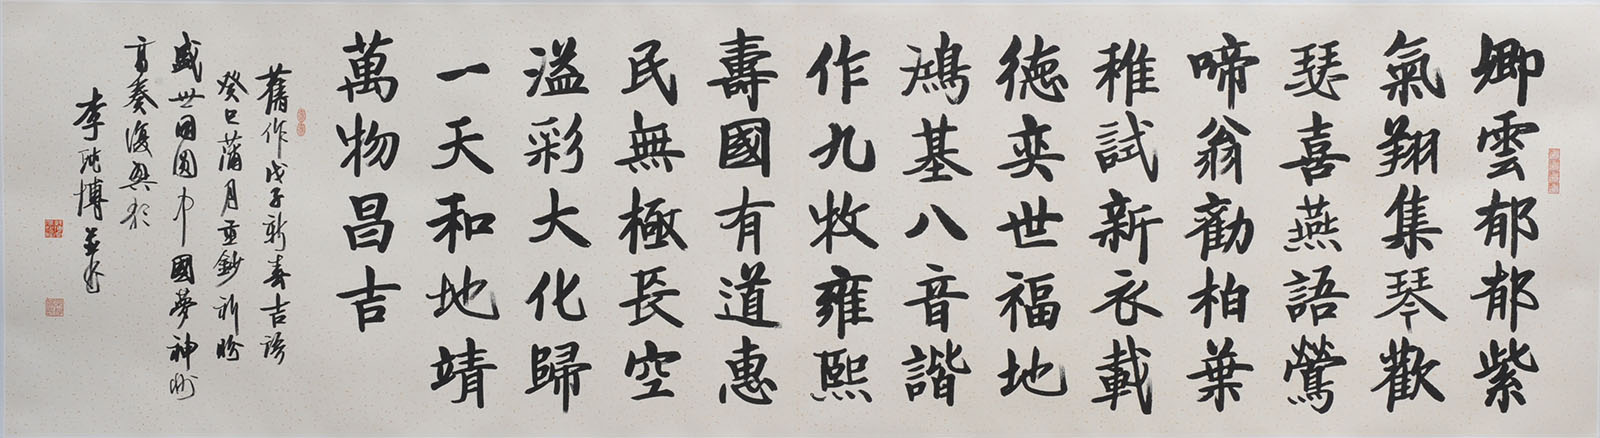 卿雲郁郁紫
氣翔集琴歡
瑟喜燕語鶯
啼翁勸柏葉
稚試新衣載
德奕世福地
鴻基八音諧
作九牧雍熙
壽國有道惠
民無極長空
溢彩大化歸
一天和地靖
萬物昌吉
舊作戊子新春吉語
癸巳蒲月重鈔祈盼
盛世圓中國夢神州
高奏復興
李博